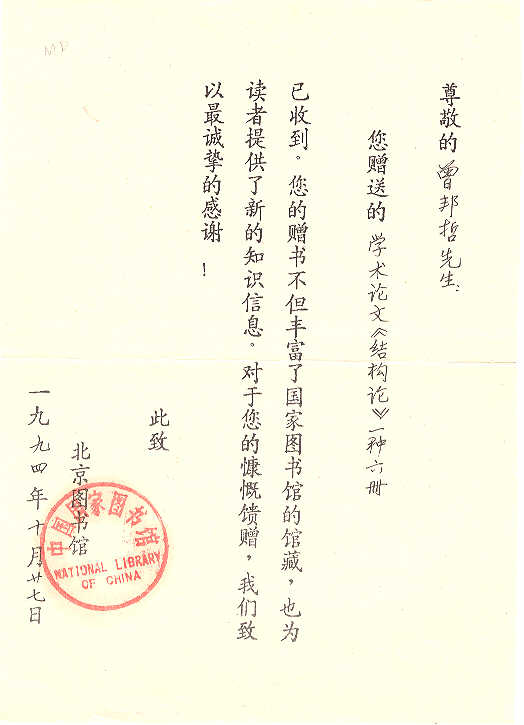 尊敬的曾邦哲先生：
您赠送的学术论文《结构论》一种六册
已收到。您的赠书不但丰富了国家图书馆的馆藏，也为
读者提供了新的知识信息。对于您的慷慨馈赠，我们致
以最诚挚的感谢！
此致
北京图书馆
一九九四年十月廿七日
中国国家图书馆
NATIONAL LIBRARY
OF CHINA
MP